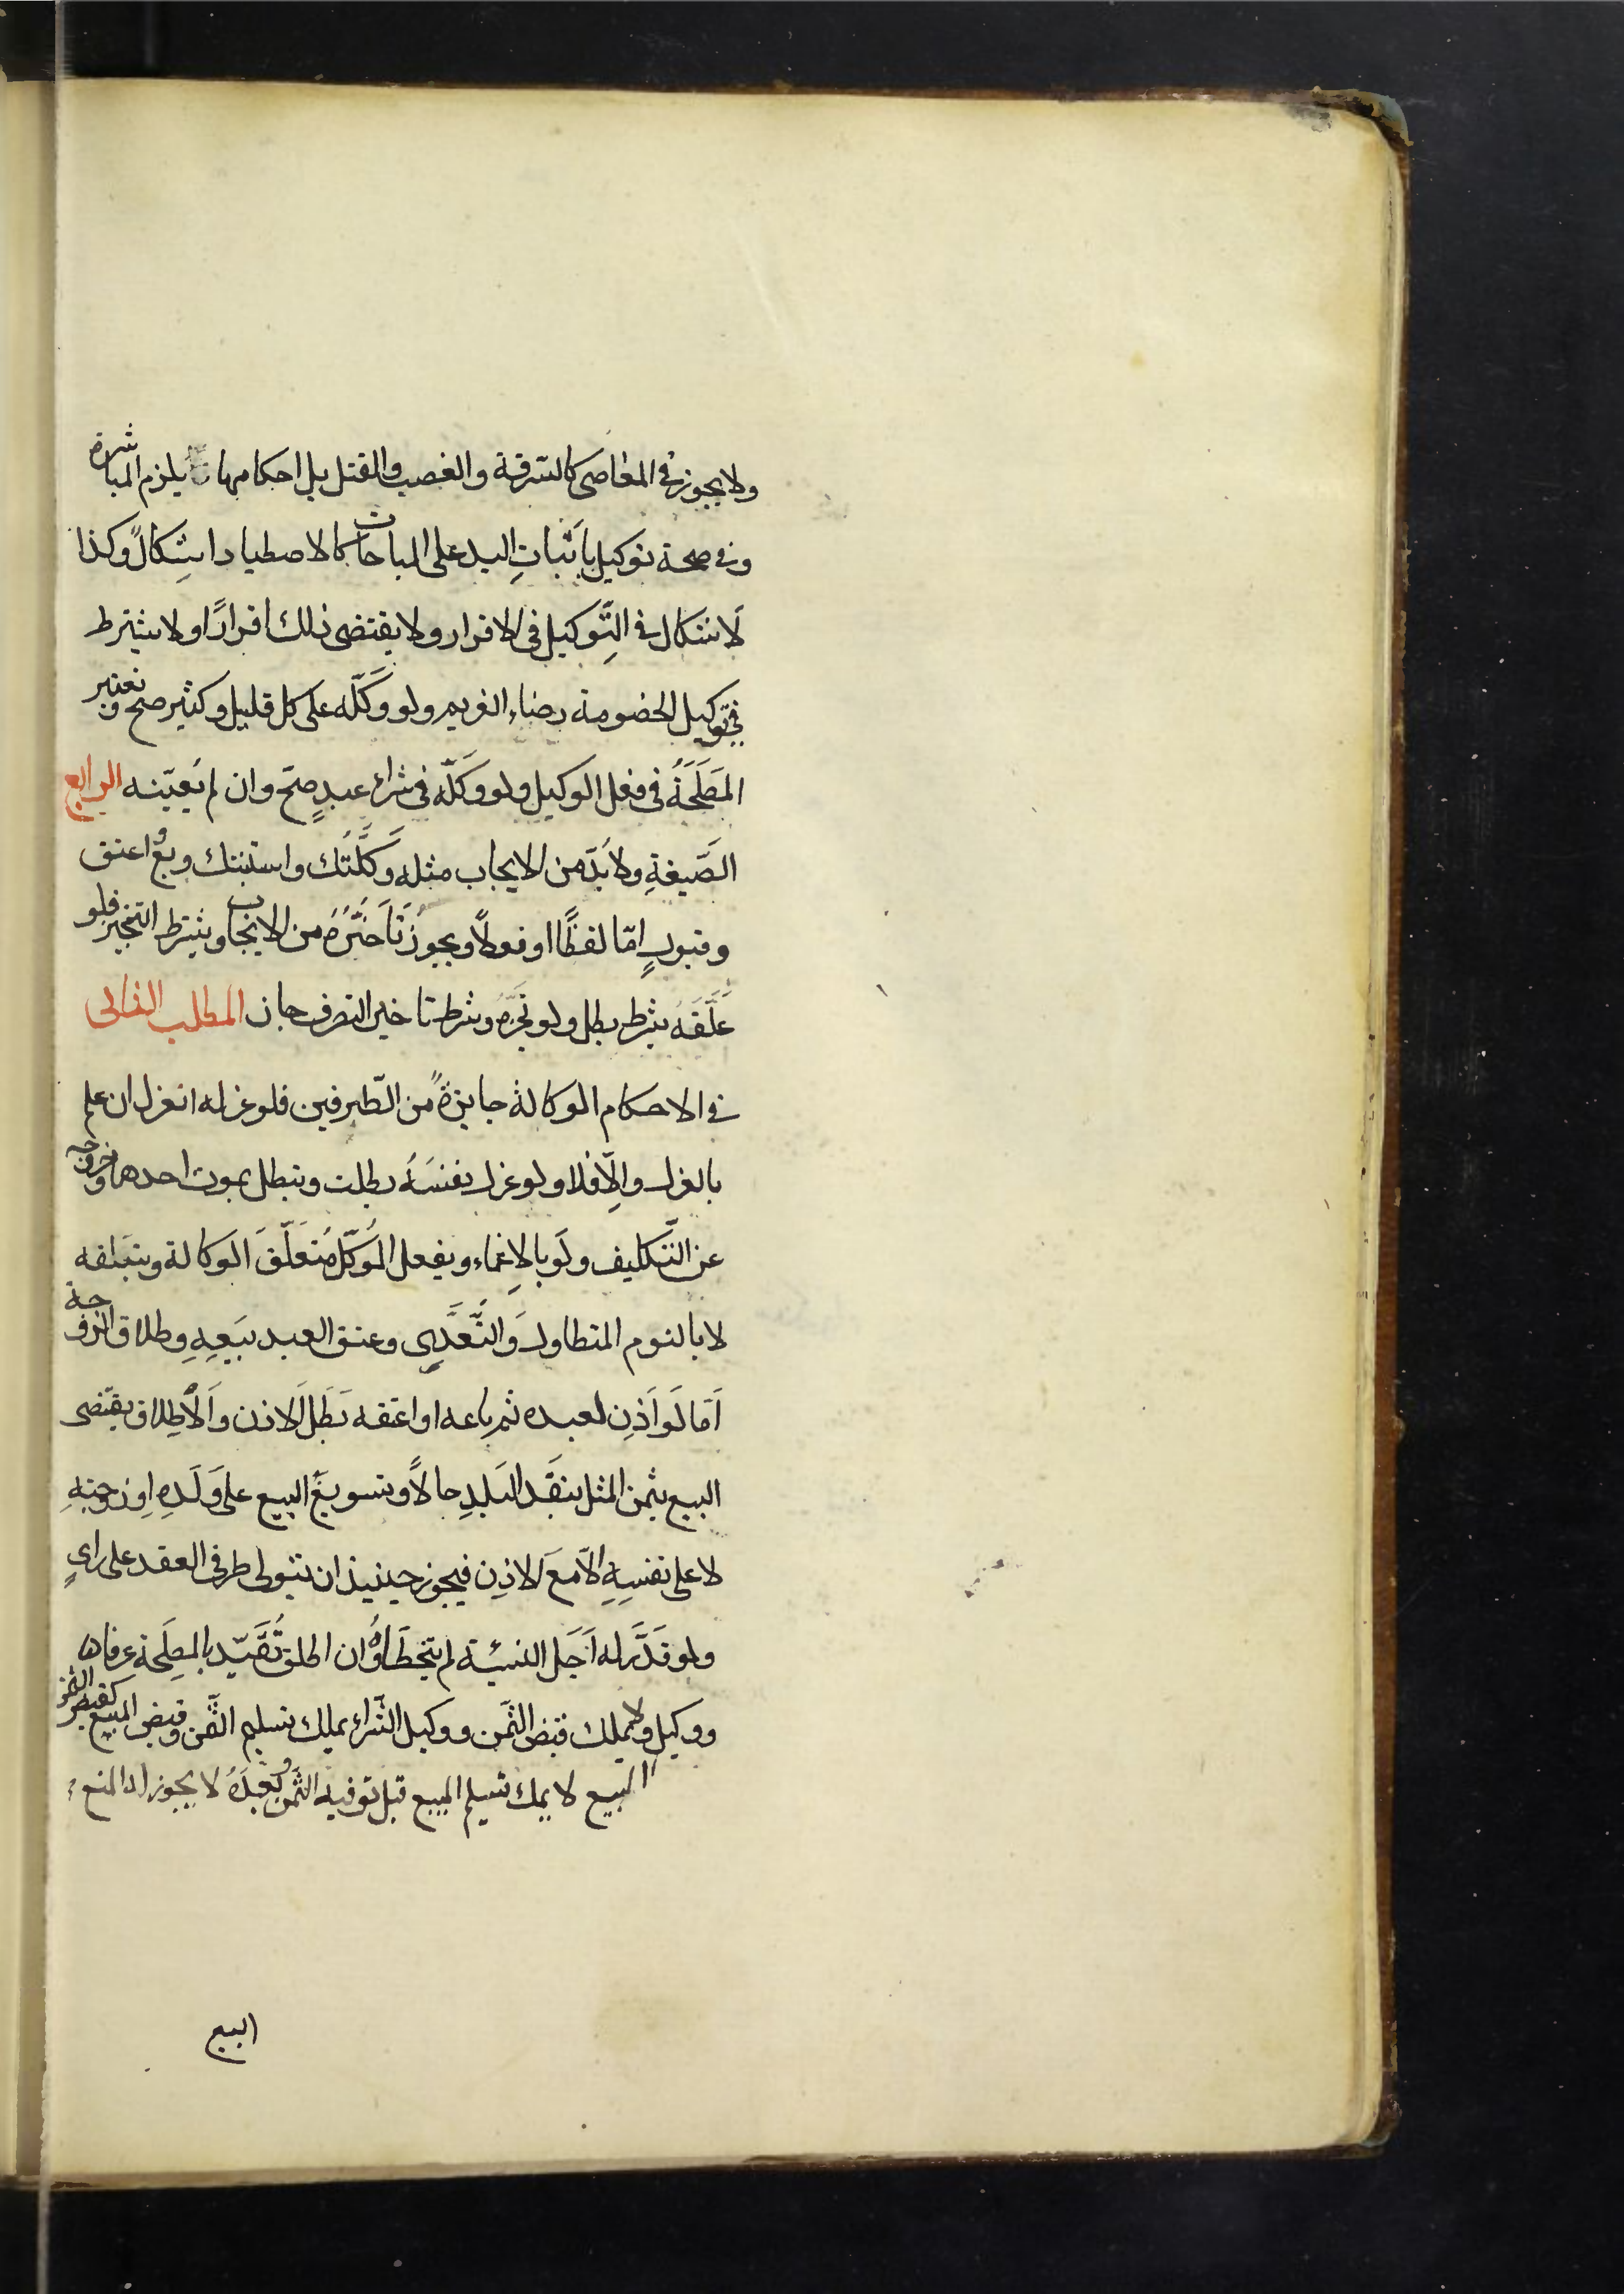 ولا يجوز في المعاصى كالسّرقة والغصب والقتل بل احكامها يلزم المباشرة
وفي صحة توكيل باثباتِ اليد على المباحات كالاصطياد اشِكالٌ وكذا
لاشكال في التَّوكيل في الاقرار ولا يقتضى ذلك اقرارًا ولا يشترط
في توكيل الخصومة رضاء الغريم ولو وَكَّله على كل قليل وكثير صح وتعتبر
المَصلَحَةُ في فعل الوكيل ولو وكَلّه في شراء عبدٍ صحّ وان لم يُعيّنه الرابع
الصَّيغةِ ولا بُدّ من الايجاب مثله وَكَّلتُك واستنبتك وبعْ اعتق
وقبولٍ امّا لفظًا او فعلاً ويجوز تَاَخَّرُهُ من الايجاب ويشترط التنجيز فلو
عَلَّقَهُ بشرط بطل ولو نجَّزهُ وشرط تاخير التصرف جاز المطلب الثانى
في الاحكام الوكالة جايزةً من الطّرفين فلو عزله انعزل ان علم
بالعزل والاِّ فلا ولو عزل نفسَهُ بطلت وتبطل بموت احدهما وخروجه
عن التَّكليف ولَو بالاِغماء وبفعل المُوكّل مُتعَلّقَ الوَكالة وبتَلفه
لا بالنوم المتطاول وَالتَّعَدِّى وعتق العبد ببَيعِهِ وطلاق الزوجة
اَمّا لَو اَذِن لعبده ثم باعه او اعتقه بَطَل الاذن وَالاِطلاق يقتضى
البيع بثمن المثل بنقَد البَلدِ حالاً وتسويغَ البيع على وَلَدِهِ او زوجتِهِ
لا على نفسِهِ الاّ مَعَ الاذِن فيجوز حينيذ ان يتولى طرفى العقد على راىٍ
ولو قدَّر له اَجَل النسئية لم يتخطَاهُ وان اطلق تُقَيّد بالمصلَحة عرفاها
ووكيل ولا يملك قبض الثمن ووكيل الشّراء يملك تسليم الثَّمن وقبض المبيع كقبض الثمن
المبيع لا يمك تسليم المبيع قبل توفيه الثمن وبعدَهُ لا يجوز له المنع
البيع